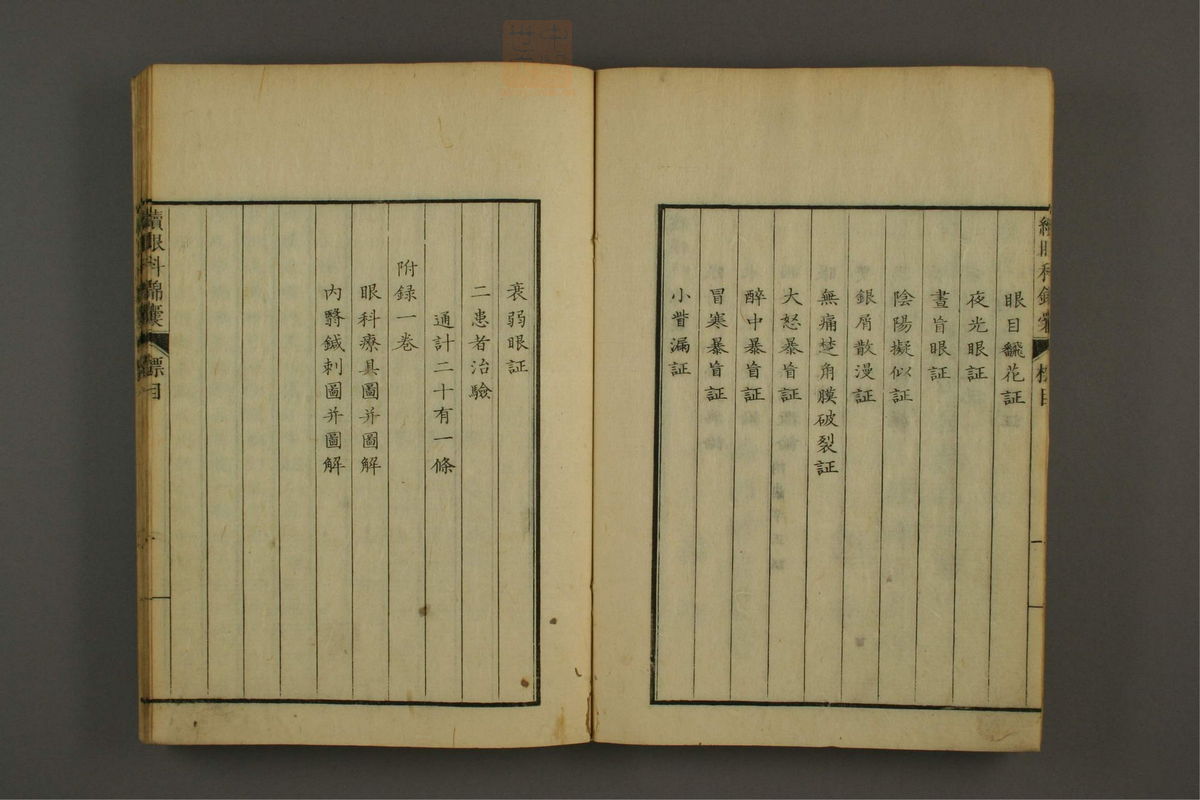 眼目飜花証
夜光眼証
晝盲眼証
陰陽擬似証
銀屑散漫証
無痛楚角膜破裂証
大怒暴盲証
醉中暴盲証
冒寒暴盲証
小眥漏証
衰弱眼証
二患者治驗
通計二十有一條
附録一卷
眼科療具圖并圖解
内翳鍼刺圖并圖解
續眼科錦囊
標目